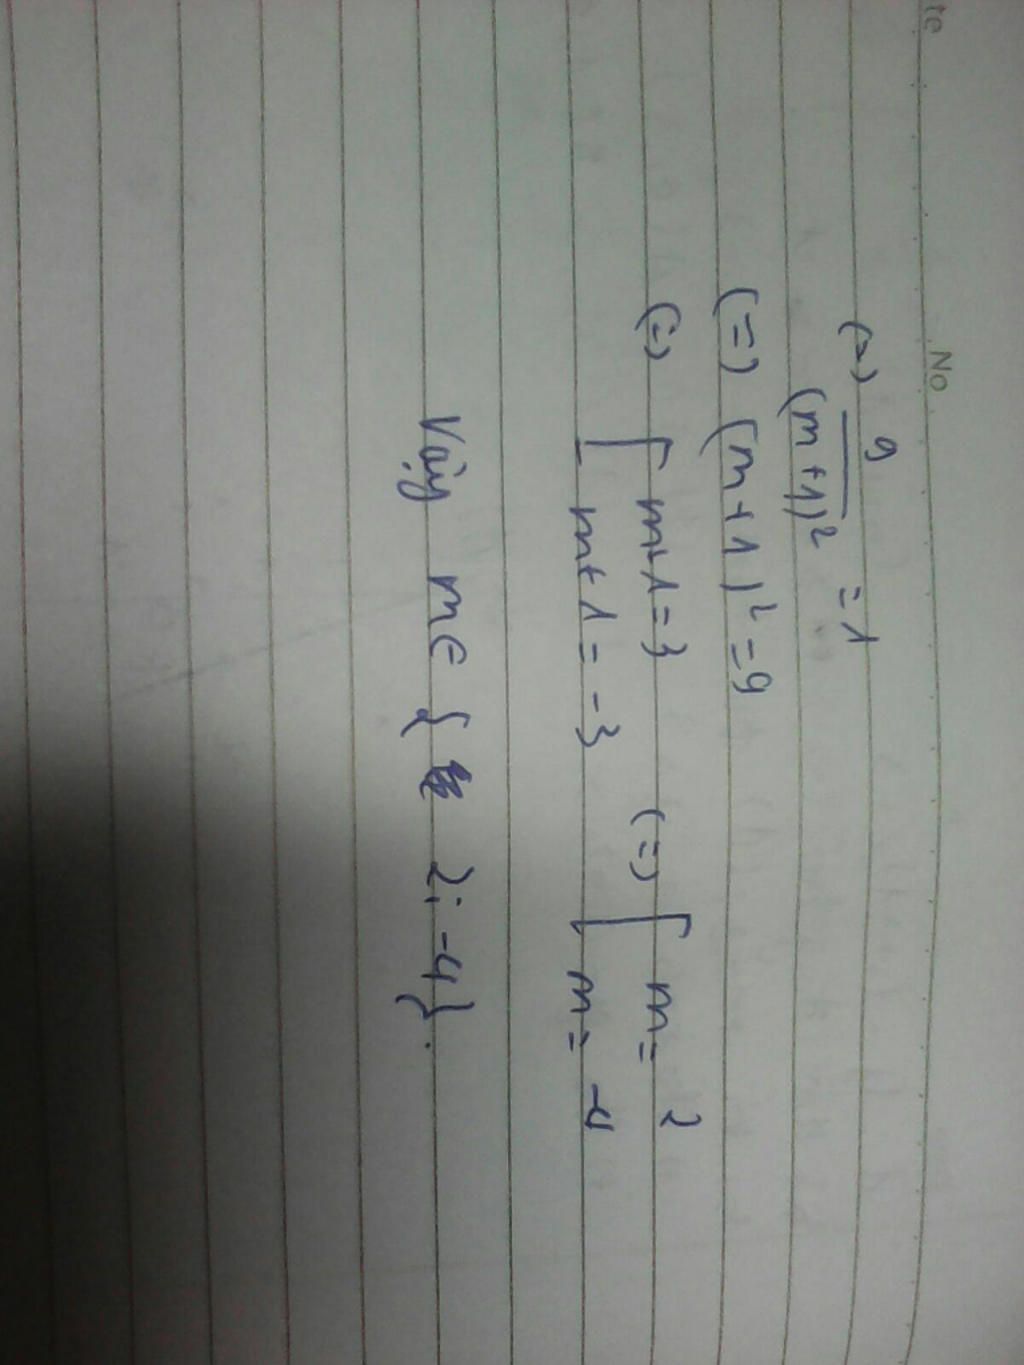 te No
(=) 9/(m+1)² = 1
(=) (m+1)² = 9
(=) [ m+1=3 (=) [ m= 2
m+1= -3 m= -4
Vậy m∈ { 2; -4}.